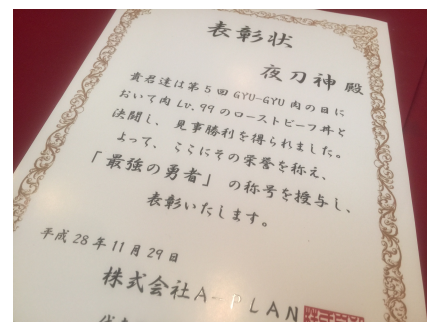 表彰状
夜刀神 殿
貴君達は第5回GYU-GYU肉の日に
おいて肉Lv.99のローストビーフ丼と
決闘し、見事勝利を得られました。
よって、ここにその栄誉を称え、
「最強の勇者」の称号を授与し、
表彰いたします。
平成28年11月29日
株式会社A-PLAN